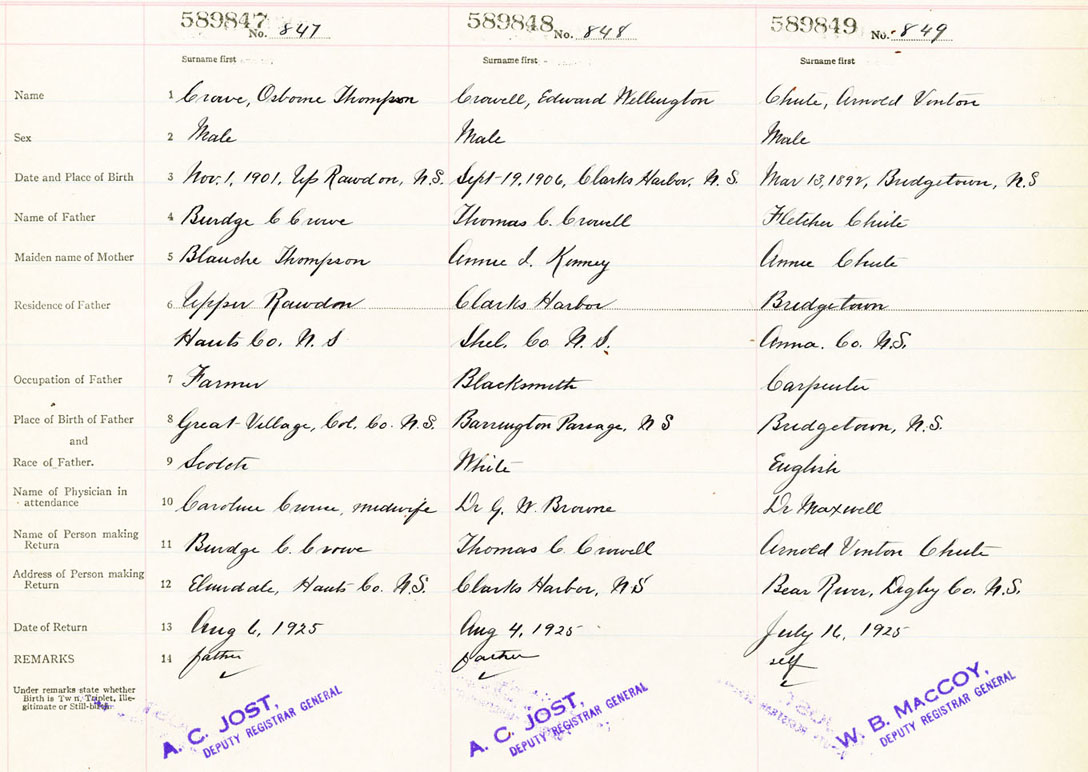 589847 No. 847 589848 No. 848 589849 No. 849
Surname first Surname first Surname first
Name 1 Crowe, Osborne Thompson Crowell, Edward Wellington Chute, Arnold Vinton
Sex 2 Male Male Male
Date and Place of Birth 3 Nov. 1, 1901, Up Rawdon, N.S. Sept 19, 1906, Clarks Harbor, N.S. Mar 13, 1892, Bridgetown, N.S
Name of Father 4 Burdge C Crowe Thomas C. Crowell Fletcher Chute
Maiden name of Mother 5 Blanche Thompson Annie I. Kenney Annie Chute
Residence of Father 6 Upper Rawdon Clarks Harbor Bridgetown
Hants Co. N.S Shel. Co N.S. Anna. Co. N.S.
Occupation of Father 7 Farmer Blacksmith Carpenter
Place of Birth of Father 8 Great Village, Col. Co. N.S. Barrington Passage, N S Bridgetown, N.S.
and
Race of Father. 9 Scotch White English
Name of Physician in attendance 10 Caroline Crowe, midwife Dr G. W. Browne Dr Maxwell
Name of Person making Return 11 Burdge C. Crowe Thomas C Crowell Arnold Vinton Chute
Address of Person making Return 12 Elmsdale, Hants Co. N.S. Clarks Harbor, NS Bear River, Digby Co. N.S.
Date of Return 13 Aug 6, 1925 Aug 4, 1925 July 16, 1925
REMARKS 14 father father self
Under remarks state whether
Birth is Twin, Triplet, Ille-
gitimate or Still-birth
A. C. JOST, A. C. JOST, W. B. MACCOY,
DEPUTY REGISTRAR GENERAL DEPUTY REGISTRAR GENERAL DEPUTY REGISTRAR GENERAL